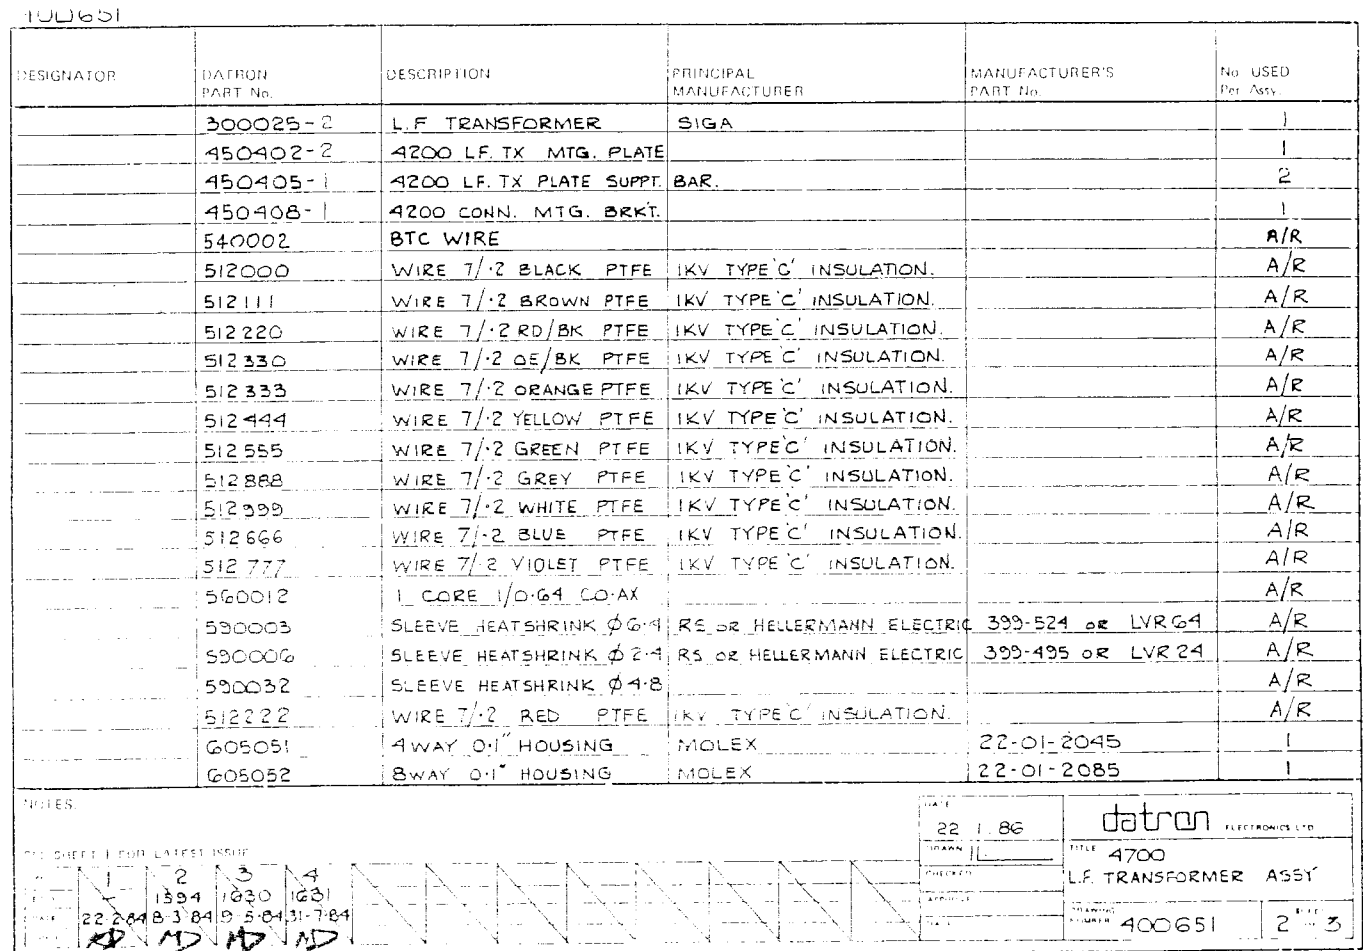 400651
DESIGNATOR DATRON PART No. DESCRIPTION PRINCIPAL MANUFACTURER MANUFACTURER'S PART No. No. USED Per Assy.
300025-2 L.F TRANSFORMER SIGA 1
450402-2 4200 LF. TX MTG. PLATE 1
450405-1 4200 LF. TX PLATE SUPPT. BAR. 2
450408-1 4200 CONN. MTG. BRKT. 1
540002 BTC WIRE A/R
512000 WIRE 7/.2 BLACK PTFE 1KV TYPE 'C' INSULATION. A/R
512111 WIRE 7/.2 BROWN PTFE 1KV TYPE 'C' INSULATION. A/R
512220 WIRE 7/.2 RD/BK PTFE 1KV TYPE 'C' INSULATION. A/R
512330 WIRE 7/.2 OE/BK PTFE 1KV TYPE 'C' INSULATION. A/R
512333 WIRE 7/.2 ORANGE PTFE 1KV TYPE 'C' INSULATION. A/R
512444 WIRE 7/.2 YELLOW PTFE 1KV TYPE 'C' INSULATION. A/R
512555 WIRE 7/.2 GREEN PTFE 1KV TYPE 'C' INSULATION. A/R
512888 WIRE 7/.2 GREY PTFE 1KV TYPE 'C' INSULATION. A/R
512999 WIRE 7/.2 WHITE PTFE 1KV TYPE 'C' INSULATION. A/R
512666 WIRE 7/.2 BLUE PTFE 1KV TYPE 'C' INSULATION. A/R
512777 WIRE 7/.2 VIOLET PTFE 1KV TYPE 'C' INSULATION. A/R
560012 1 CORE 1/0.64 CO-AX A/R
590003 SLEEVE HEATSHRINK Ø6.4 RS OR HELLERMANN ELECTRIC 399-524 OR LVR64 A/R
590006 SLEEVE HEATSHRINK Ø2.4 RS OR HELLERMANN ELECTRIC 399-495 OR LVR24 A/R
590032 SLEEVE HEATSHRINK Ø4.8 A/R
512222 WIRE 7/.2 RED PTFE 1KV TYPE 'C' INSULATION. A/R
605051 4WAY 0.1" HOUSING MOLEX 22-01-2045 1
605052 8WAY 0.1" HOUSING MOLEX 22-01-2085 1
NOTES.
SHEET 1 FOR LATEST ISSUE
1 2 3 4
- 1594 1630 1631
DATE 22-2-84 8-3-84 9-5-84 31-7-84
DATE
22 1.86
DRAWN
CHECKED
datron ELECTRONICS LTD
TITLE 4700
L.F. TRANSFORMER ASSY
DRAWING NUMBER 400651 2 3